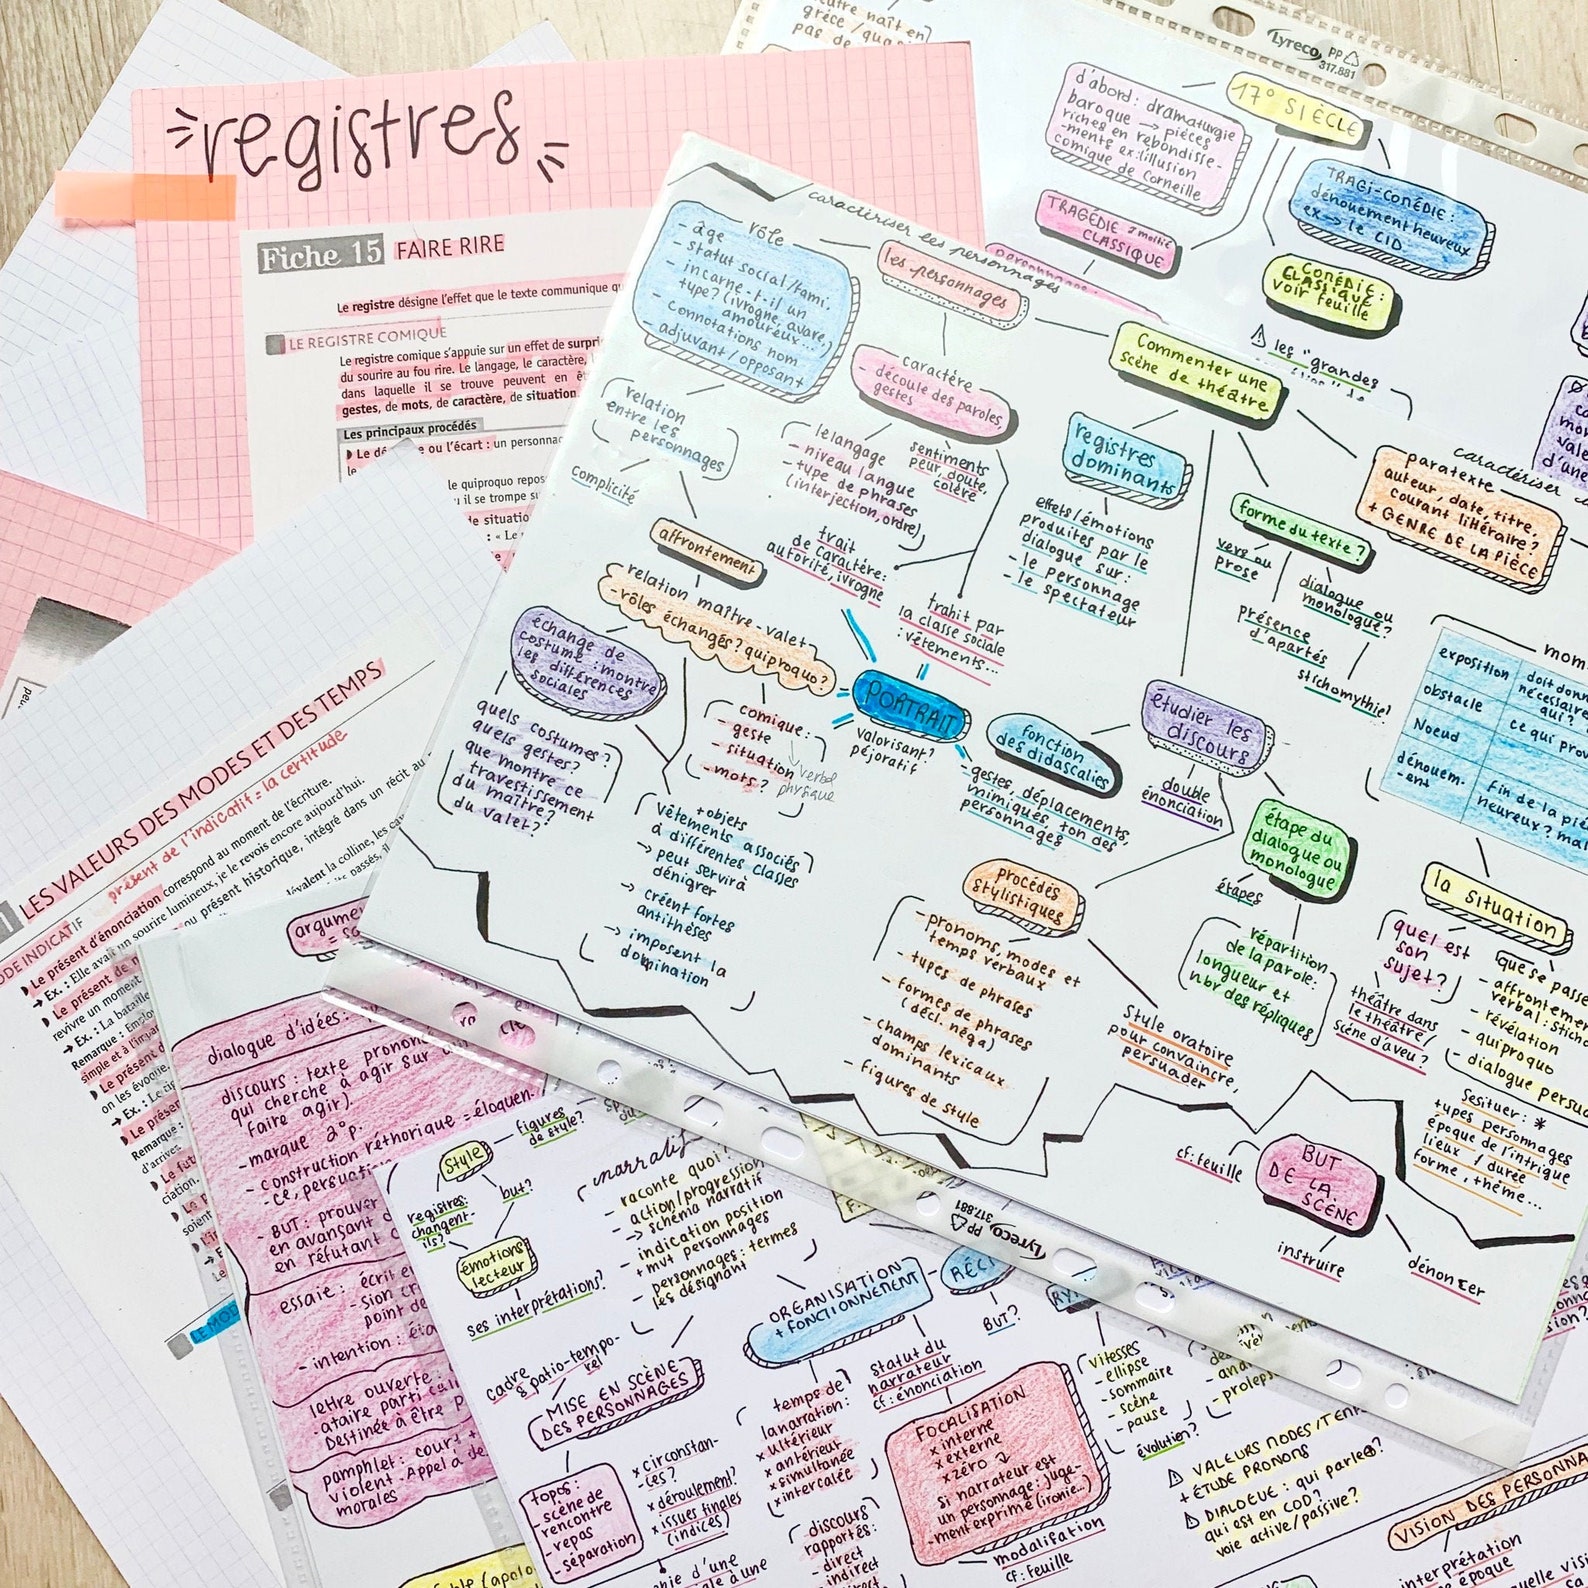 registres
Fiche 15 FAIRE RIRE
Le registre désigne l'effet que le texte communique
LE REGISTRE COMIQUE
Le registre comique s'appuie sur un effet de
du sourire au fou rire. Le langage, le caractère,
dans laquelle il se trouve peuvent en
gestes, de mots, de caractère, de situation
Les principaux procédés
ou l'écart : un
le quiproquo
il se trompe
de situation
: « Le
Lyreco PP
317.881
17° SIÈCLE
d'abord : dramaturgie
baroque → pièces
riches en rebondisse-
-ments ex: lillusion
comique de Corneille
TRAGÉDIE
CLASSIQUE
TRAGI-COMÉDIE :
dénouement heureux
ex → le CID
COMÉDIE
CLASSIQUE :
voir feuille
⚠ les "grandes
caractériser les personnages
les personnages
rôle
- âge
- statut social/fami.
- incarne-t-il un
type? (ivrogne, avare,
amoureux...)
- connotations nom
- adjuvant/opposant
caractère
- découle des paroles,
gestes
relation
entre les
personnages
complicité
le langage
- niveau langue
- type de phrases
(interjection, ordre)
sentiments
peur, doute,
colère
trait
de caractère:
autorité, ivrogne
trahit par
la classe sociale
: vêtements...
affrontement
relation maître-valet
- rôles échangés? quiproquo?
échange de
costume : montre
les différences
sociales
quels costumes?
quels gestes?
que montre ce
travestissement
du maître?
du valet?
comique :
- geste
- situation
- mots?
verbal
physique
PORTRAIT
valorisant?
péjoratif
+objets
vêtements associés
à différentes classes
→ peut servir à
dénigrer
→ créent fortes
antithèses
→ imposent la
domination
Commenter une
scène de théâtre
registres
dominants
effets/émotions
produites par le
dialogue sur :
- le personnage
- le spectateur
forme du texte?
vers ou
prose
dialogue ou
monologue?
présence
d'apartés
stichomythie?
paratexte
auteur, date, titre,
courant littéraire?
+ GENRE DE LA PIÈCE
caractériser
exposition
obstacle
ce qui
Noeud
dénouem-
-ent
fin de la
heureux?
étudier les
discours
fonction
des didascalies
- gestes, déplacements,
mimiques, ton des
personnages
double
énonciation
étape du
dialogue ou
monologue
étapes
répartition
de la parole:
longueur et
nbr des répliques
procédés
stylistiques
- pronoms, modes et
temps verbaux
- types de phrases
- formes de phrases
(décl. néga)
- champs lexicaux
dominants
- figures de style
style oratoire
pour convaincre,
persuader
la situation
quel est
son
sujet?
théâtre dans
le théâtre/
scène d'aveu?
que se passe
- affrontement
verbal :
- révélation
- quiproquo
- dialogue
se situer : *
types personnages
époque de l'intrigue
lieux / durée
forme, thème...
BUT
DE LA
SCÈNE
cf: feuille
instruire
dénoncer
LES VALEURS DES MODES ET DES TEMPS
INDICATIF
présent de l'indicatif = la certitude
Le présent d'énonciation correspond au moment de l'écriture.
→ Ex. : Elle avait un sourire lumineux, je le revois encore aujourd'hui.
Le présent de
ou présent historique, intégré dans un récit au
revivre un moment
→ Ex. : La bataille
Remarque :
simple et à
Le présent
on les
→ Ex. : Le
Le présent
Remarque :
d'arriver
Le
dialogue d'idées :
discours : texte
qui cherche à agir sur
faire agir).
- marque 2°p.
- construction réthorique = éloquen.
-ce,
- BUT : prouver
en avançant
en réfutant
- essaie :
point de
- intention :
lettre ouverte :
-ataire
Destinée à être
pamphlet : court +
violent. Appel à
morales
style
figures
de style?
registres:
changent-
ils?
but?
émotions
lecteur
ses interprétations?
narratif
- raconte quoi?
- action/progression
→ schéma narratif
- indication position
+ mvt personnages
- personnages : termes
les désignant
cadre
spatio-tempo-
rel
MISE EN SCÈNE
DES PERSONNAGES
topos:
- scène de
rencontre
- repas
- séparation
x circonstan-
ces?
x déroulement?
x issues finales
(indices)
ORGANISATION
+ FONCTIONNEMENT
temps de
la narration :
x ultérieur
x antérieur
x simultanée
x intercalée
discours
rapportés:
- direct
- indirect
statut du
narrateur
cf: énonciation
FOCALISATION
x interne
x externe
x zéro
si narrateur est
un personnage : juge-
-ment exprimé (ironie...)
modalisation
cf: feuille
BUT?
vitesses
- ellipse
- sommaire
- scène
- pause
évolution?
⚠ VALEURS MODES/TEMPS
+ ÉTUDE PRONOMS
⚠ DIALOGUE : qui parle?
qui est en COD?
voie active/passive?
VISION DES
interprétation
époque
Lyreco PP
317.881